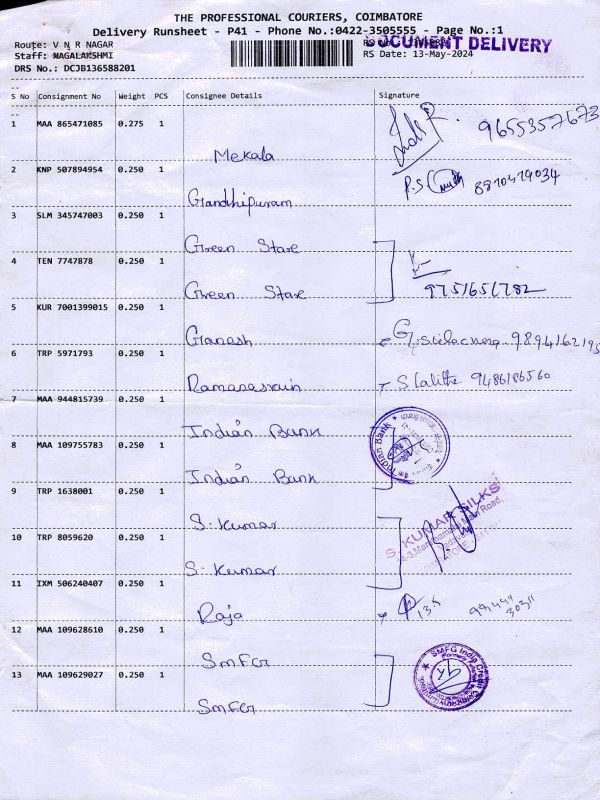 THE PROFESSIONAL COURIERS, COIMBATORE
Delivery Runsheet - P41 - Phone No.:0422-3505555 - Page No.:1
Route: V N R NAGAR
DOCUMENT DELIVERY
Staff: NAGALAKSHMI
RS Date: 13-May-2024
DRS No.: DCJB136588201
S No Consignment No Weight PCS Consignee Details Signature
1 MAA 865471085 0.275 1 Mekala 9655357673
2 KNP 507894954 0.250 1 Gandhipuram P.S
3 SLM 345747003 0.250 1 Green Stare
4 TEN 7747878 0.250 1 Green Stare 9751651782
5 KUR 7001399015 0.250 1 Ganash
6 TRP 5971793 0.250 1 S Lalitha 9486186560
7 MAA 944815739 0.250 1 Indian Bank
Indian Bank
8 MAA 109755783 0.250 1 Indian Bank
9 TRP 1638001 0.250 1 S. Kumar
S. KUMAR SILKS
10 TRP 8059620 0.250 1 S. Kumar
11 IXM 506240407 0.250 1 Raja
12 MAA 109628610 0.250 1 SMFG
SMFG India Credit
13 MAA 109629027 0.250 1 SMFG